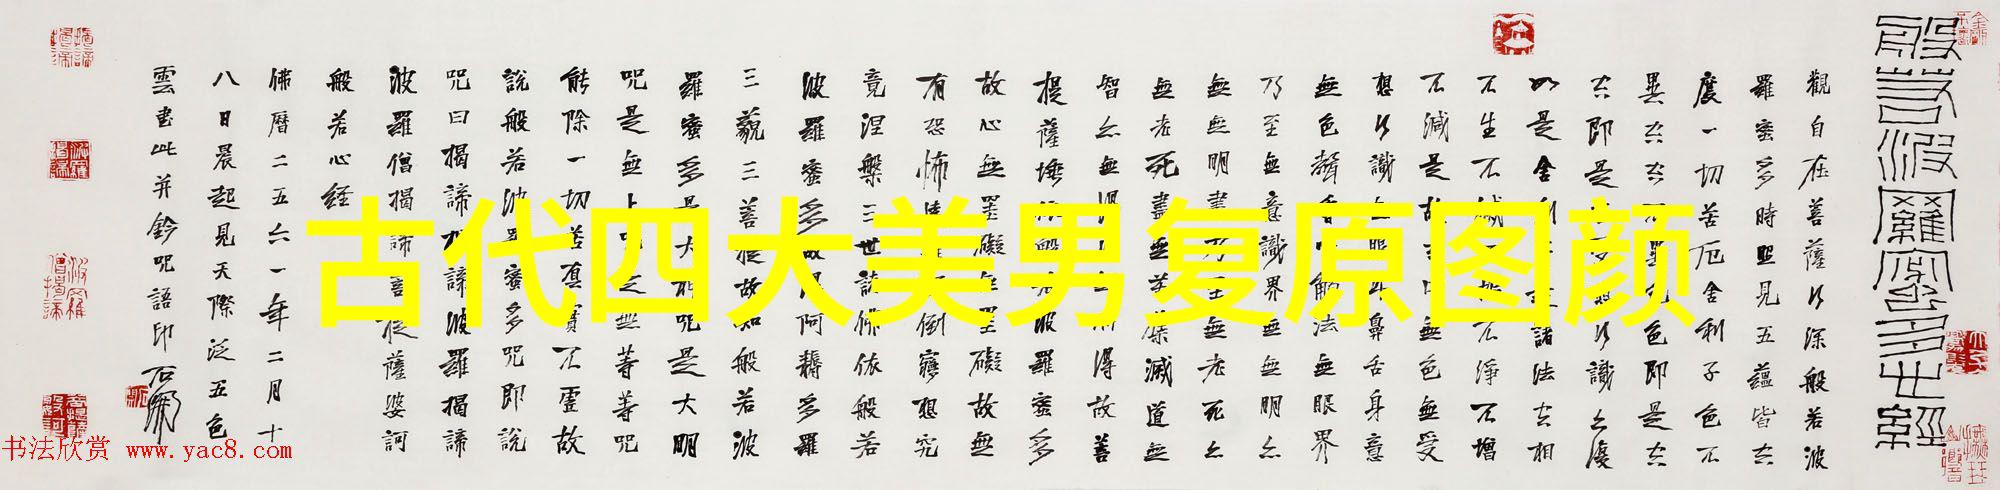 般若波羅蜜多心經
觀自在菩薩行深般若波
羅蜜多時照見五蘊皆空
度一切苦厄舍利子色不
異空空不異色色即是空
空即是色受想行識亦復
如是舍利子是諸法空相
不生不滅不垢不淨不增
不減是故空中無色無受
想行識無眼耳鼻舌身意
無色聲香味觸法無眼界
乃至無意識界無無明亦
無無明盡乃至無老死亦
無老死盡無苦集滅道無
智亦無得以無所得故菩
提薩埵依般若波羅蜜多
故心無罣礙無罣礙故無
有恐怖遠離顛倒夢想究
竟涅槃三世諸佛依般若
波羅蜜多故得阿耨多羅
三藐三菩提故知般若波
羅蜜多是大神咒是大明
咒是無上咒是無等等咒
能除一切苦真實不虛故
說般若波羅蜜多咒即說
咒曰揭諦揭諦波羅揭諦
波羅僧揭諦菩提薩婆訶
般若心経
佛曆二五六一年二月十
八日晨起見天際泛五色
雲書此并鈐咒語印
古代四大美男复原图颜
书法欣赏 www.yac8.com